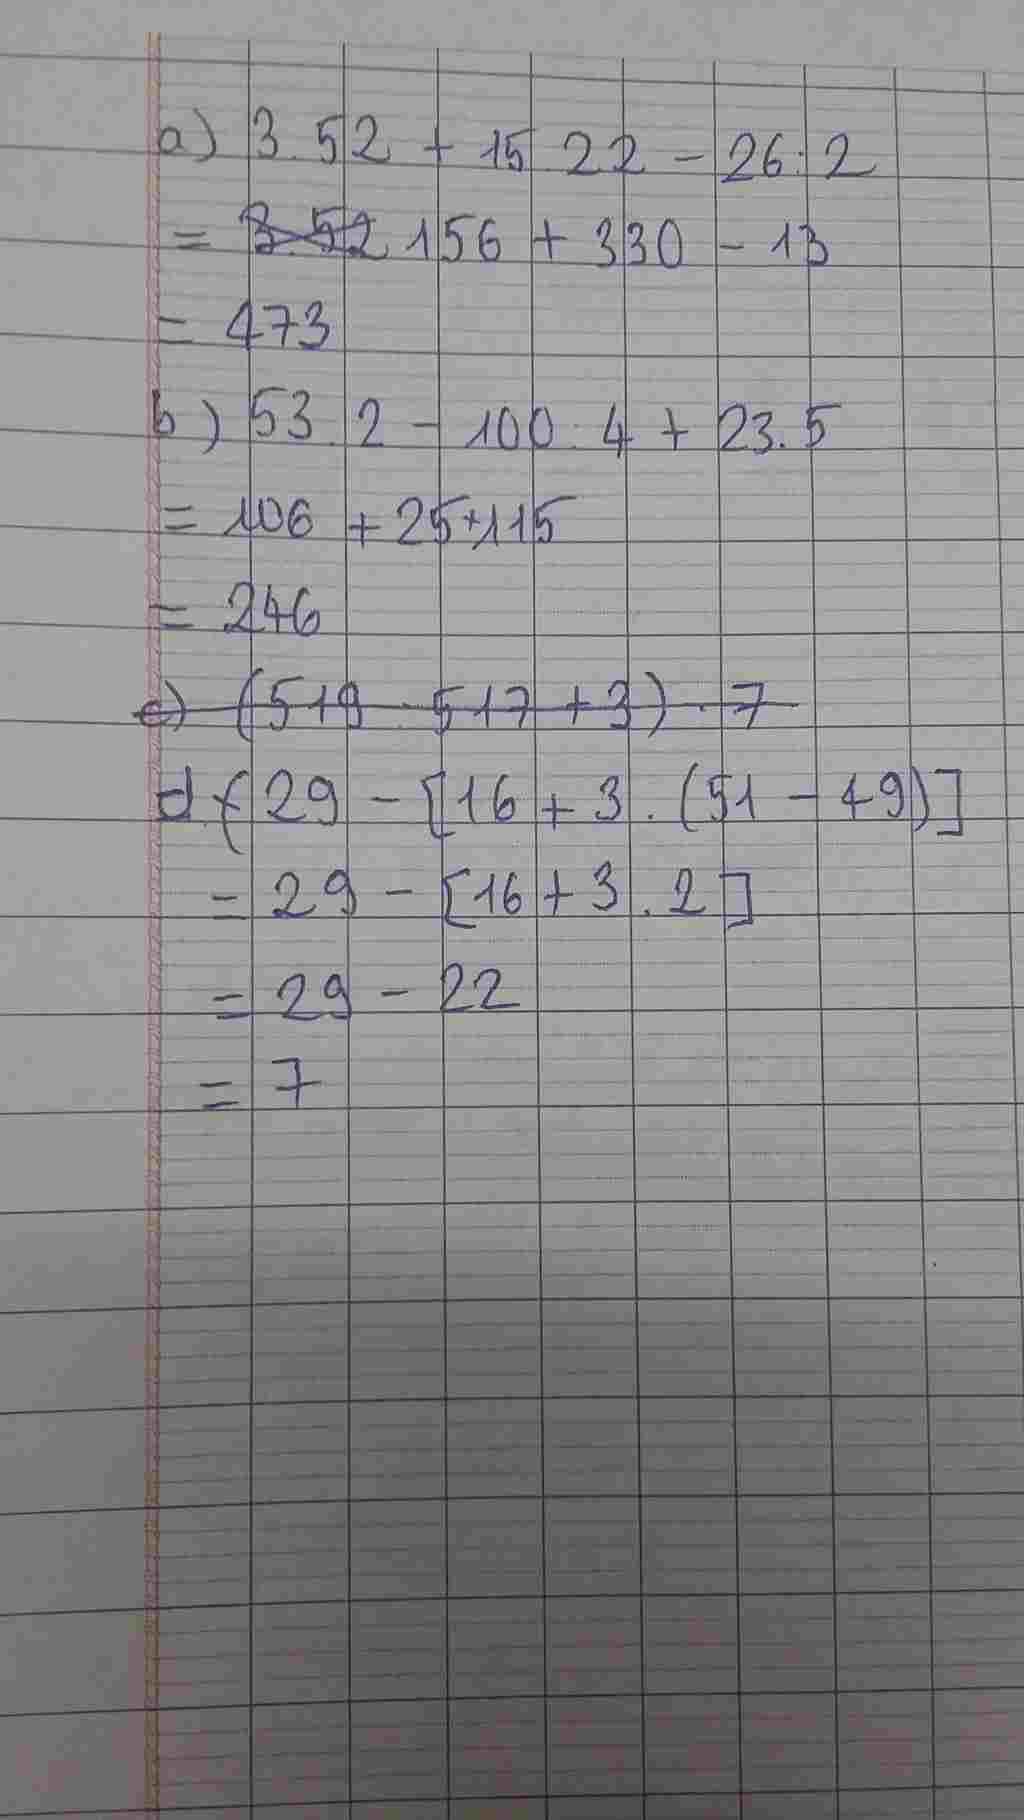 a) 3.52 + 15 22 - 26:2
= 3.52 156 + 330 - 13
= 473
b) 53.2 - 100:4 + 23.5
= 106 + 25+115
= 246
c) (519 - 517 + 3) . 7
d.( 29 - [16 + 3 . (51 - 49)]
= 29 - [16 + 3 . 2]
= 29 - 22
= 7